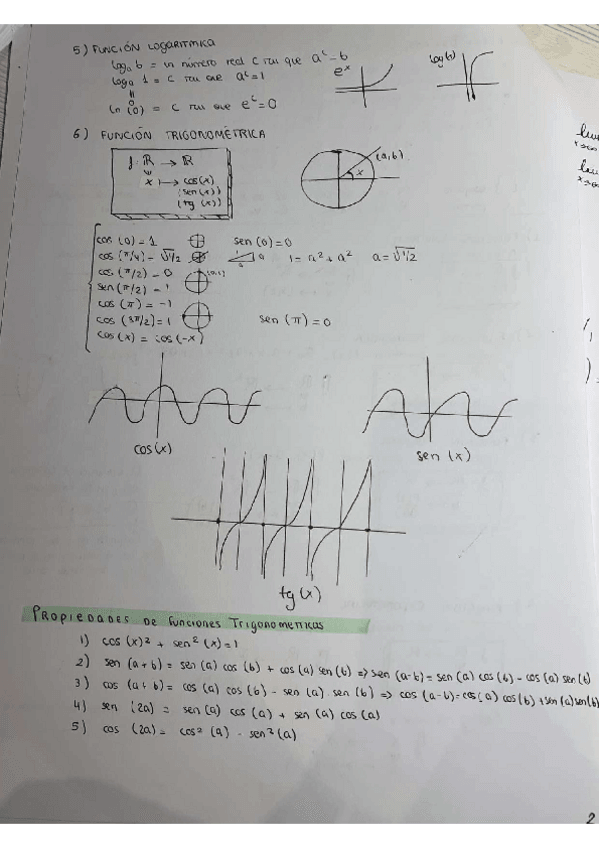 5) FUNCIÓN LOGARITMICA
log_a b = un número real c tal que a^c = b
log_a 1 = c tal que a^c = 1
ln (0) = c tal que e^c = 0
e^x
log(x)
6) FUNCIÓN TRIGONOMÉTRICA
f: ℝ → ℝ
x ↦ cos(x)
(sen(x))
(tg(x))
(a,b)
x
cos (0) = 1 sen (0) = 0
cos (π/4) = √1/2 1 = a² + a² a = √1/2
cos (π/2) = 0
sen (π/2) = 1
cos (π) = -1
cos (3π/2) = 1 sen (π) = 0
cos (x) = cos (-x)
cos(x)
sen (x)
tg(x)
PROPIEDADES DE Funciones Trigonometricas
1) cos (x)² + sen² (x) = 1
2) sen (a+b) = sen (a) cos (b) + cos (a) sen (b) => sen (a-b) = sen (a) cos (b) - cos (a) sen (b)
3) cos (a+b) = cos (a) cos (b) - sen (a) . sen (b) => cos (a-b) = cos (a) cos (b) + sen (a) sen (b)
4) sen (2a) = sen (a) cos (a) + sen (a) cos (a)
5) cos (2a) = cos² (a) - sen² (a)
2